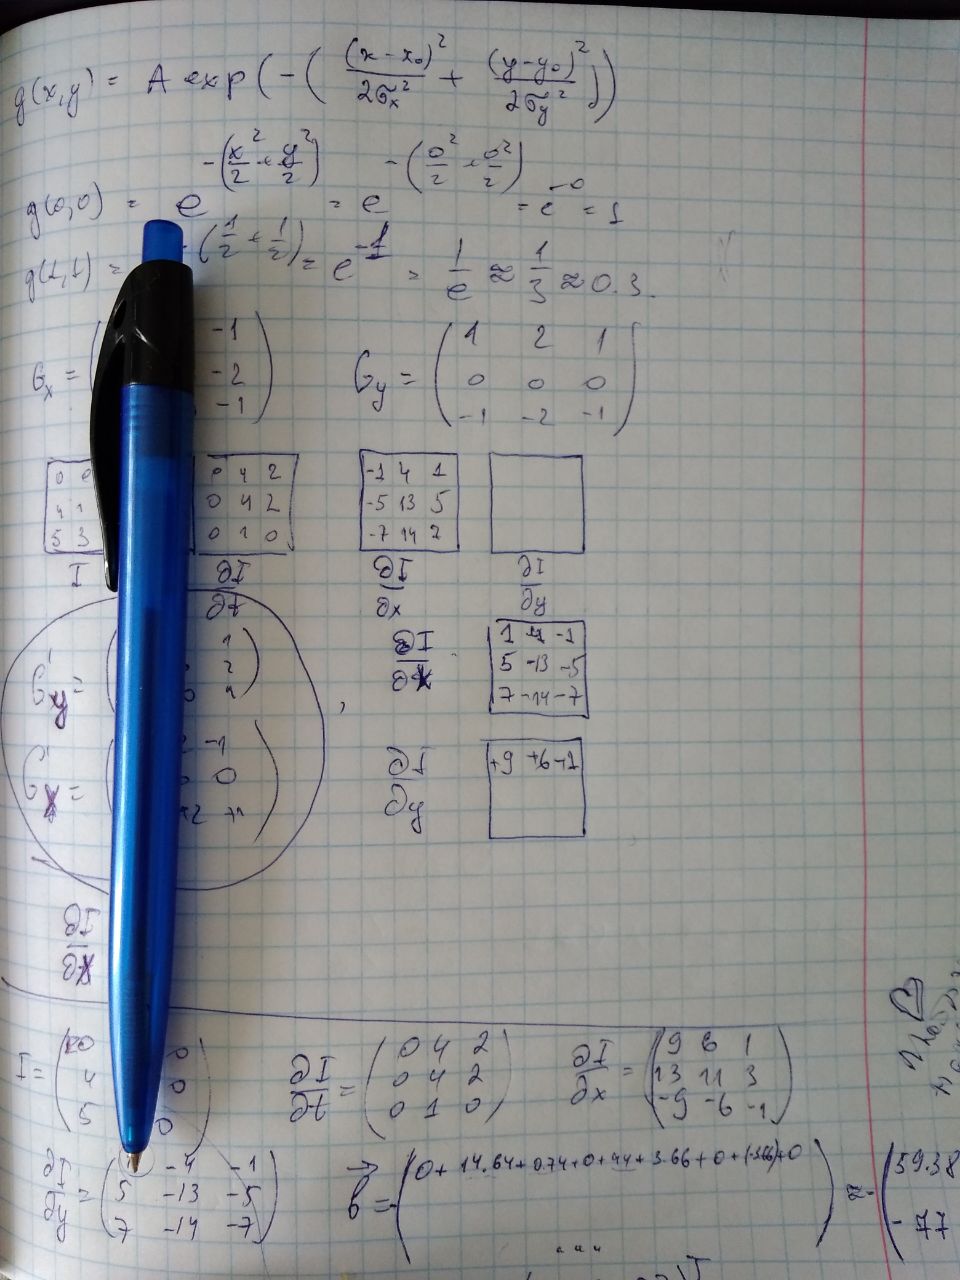 g(x,y) = A exp(-((x-x₀)²/2σx² + (y-y₀)²/2σy²))
g(0,0) = e^-(x²/2 + y²/2) = e^-(0²/2 + 0²/2) = e^-0 = 1
g(1,1) = -(1/2 + 1/2) = e^-1 = 1/e ≈ 1/3 ≈ 0.3.
Gx = ( -1
-2
-1 )
Gy = ( 1 2 1
0 0 0
-1 -2 -1 )
0
4 1
5 3
I
0 4 2
0 4 2
0 1 0
∂I/∂t
-1 4 1
-5 13 5
-7 14 7
∂I/∂x
∂I/∂y
G'y = ( 1
2
1 ) ,
∂I/∂x
1 -4 -1
5 -13 -5
7 -14 -7
G'x = ( -1
0
+2 +1 )
∂I/∂y
+9 +6 +1
∂I/∂x
I = ( 0 0
4 0
5 0 )
∂I/∂t = ( 0 4 2
0 4 2
0 1 0 )
∂I/∂x = ( 9 6 1
13 11 3
-9 -6 -1 )
∂I/∂y = ( -4 -1
5 -13 -5
7 -14 -7 )
b = -( 0+14.64+0.74+0+44+3.66+0+(-3.66)+0 ) ≈ - ( 59.38
-77
...